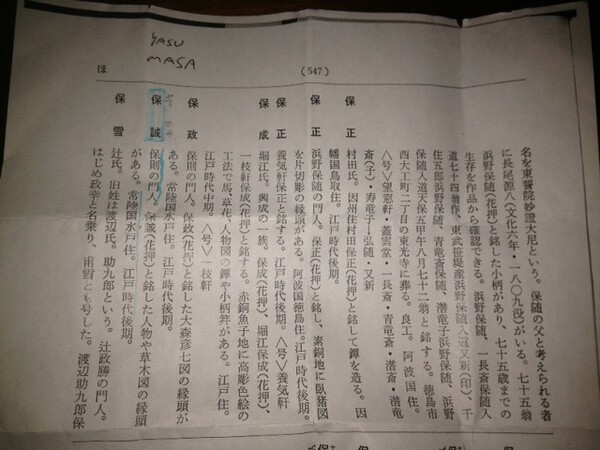 YASU
MASA
ほ
(547)
名を東誓院妙證大尼という。保随の父と考えられる者
に長尾源八(文化六年・一八〇九歿)がいる。七十五翁
浜野保随(花押)と銘した小柄があり、七十五歳までの
生存を作品から確認できる。浜野保随、一長斎保随入
道七十四翁作、東武笹堤産浜野保随入道又新(印)、千
住五郎浜野保随、青竜斎保随、潜竜子浜野保随、浜野
保随入道天保五甲午八月七十二翁と銘する。徳島市
西大工町二丁目の東光寺に葬る。良工。阿波国住。
〈号〉望窓軒・蓋雲堂・一長斎・青竜斎・潜斎・潜竜
斎(子)・寿竜子・弘随・又新
保正 村田氏。因州住村田保正(花押)と銘して鐔を造る。因
幡国鳥取住。江戸時代後期。
保正 浜野保随の門人。保正(花押)と銘し、素銅地に臥猪図
を片切彫の縁頭がある。阿波国徳島住。江戸時代後期。
保正 養気軒保正と銘する。江戸時代後期。〈号〉養気軒
保成 堀江氏。興成の一族。保成(花押)、堀江保成(花押)、
一枝軒保成(花押)と銘する。赤銅魚子地に高彫色絵の
工法で馬、草花、人物図の鐔や小柄笄がある。江戸住。
江戸時代中期。〈号〉一枝軒
保政 保則の門人。保政(花押)と銘した大森彦七図の縁頭が
ある。常陸国水戸住。江戸時代後期。
保誠 保則の門人。保誠(花押)と銘した人物や草木図の縁頭
がある。常陸国水戸住。江戸時代後期。
保雪 辻氏。旧姓は渡辺氏。助九郎という。辻政勝の門人。
はじめ政幸と名乗り、甫雪とも号した。渡辺助九郎保